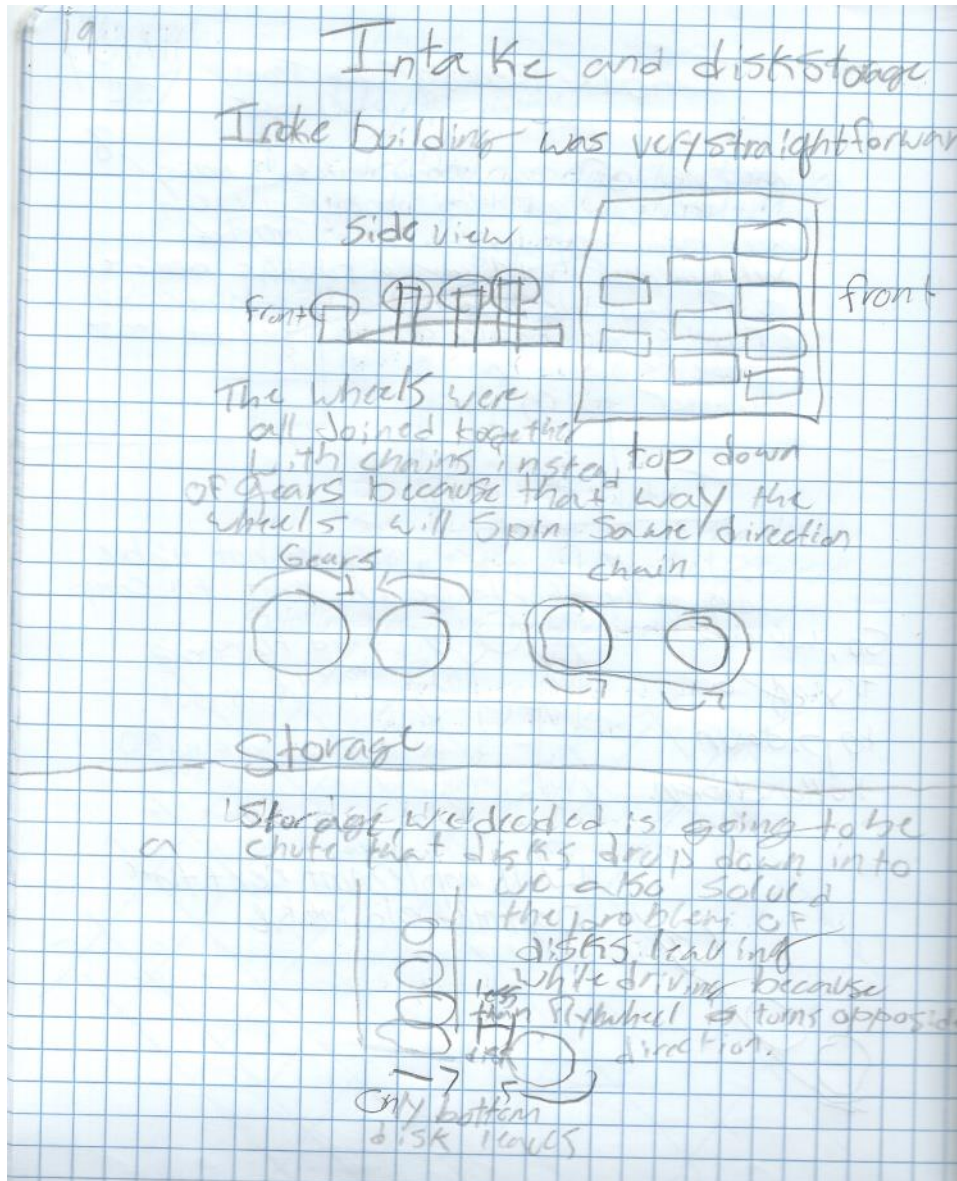 19
Intake and disk storage
Intake building was very straightforwar
Side view
front
front
The wheels were
all Joined together
with chains instead
top down
of Gears because that way the
wheels will Spin Same direction
Gears
chain
Storage
Storage, we decided, is going to be
a chute that disks drop down into
we also solved
the problem of
disks leaving
while driving because
flywheel turns opposide
direction.
less
than
disk
Only bottom
disk leaves